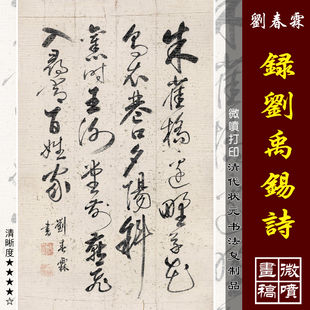 劉春霖
録劉禹錫詩
微噴打印清代狀元书法复制品
微噴
畫稿
朱雀橋邊野草花
烏衣巷口夕陽斜
舊時王謝堂前燕飛
入尋常百姓家
劉春霖書
清晰度★★★★☆